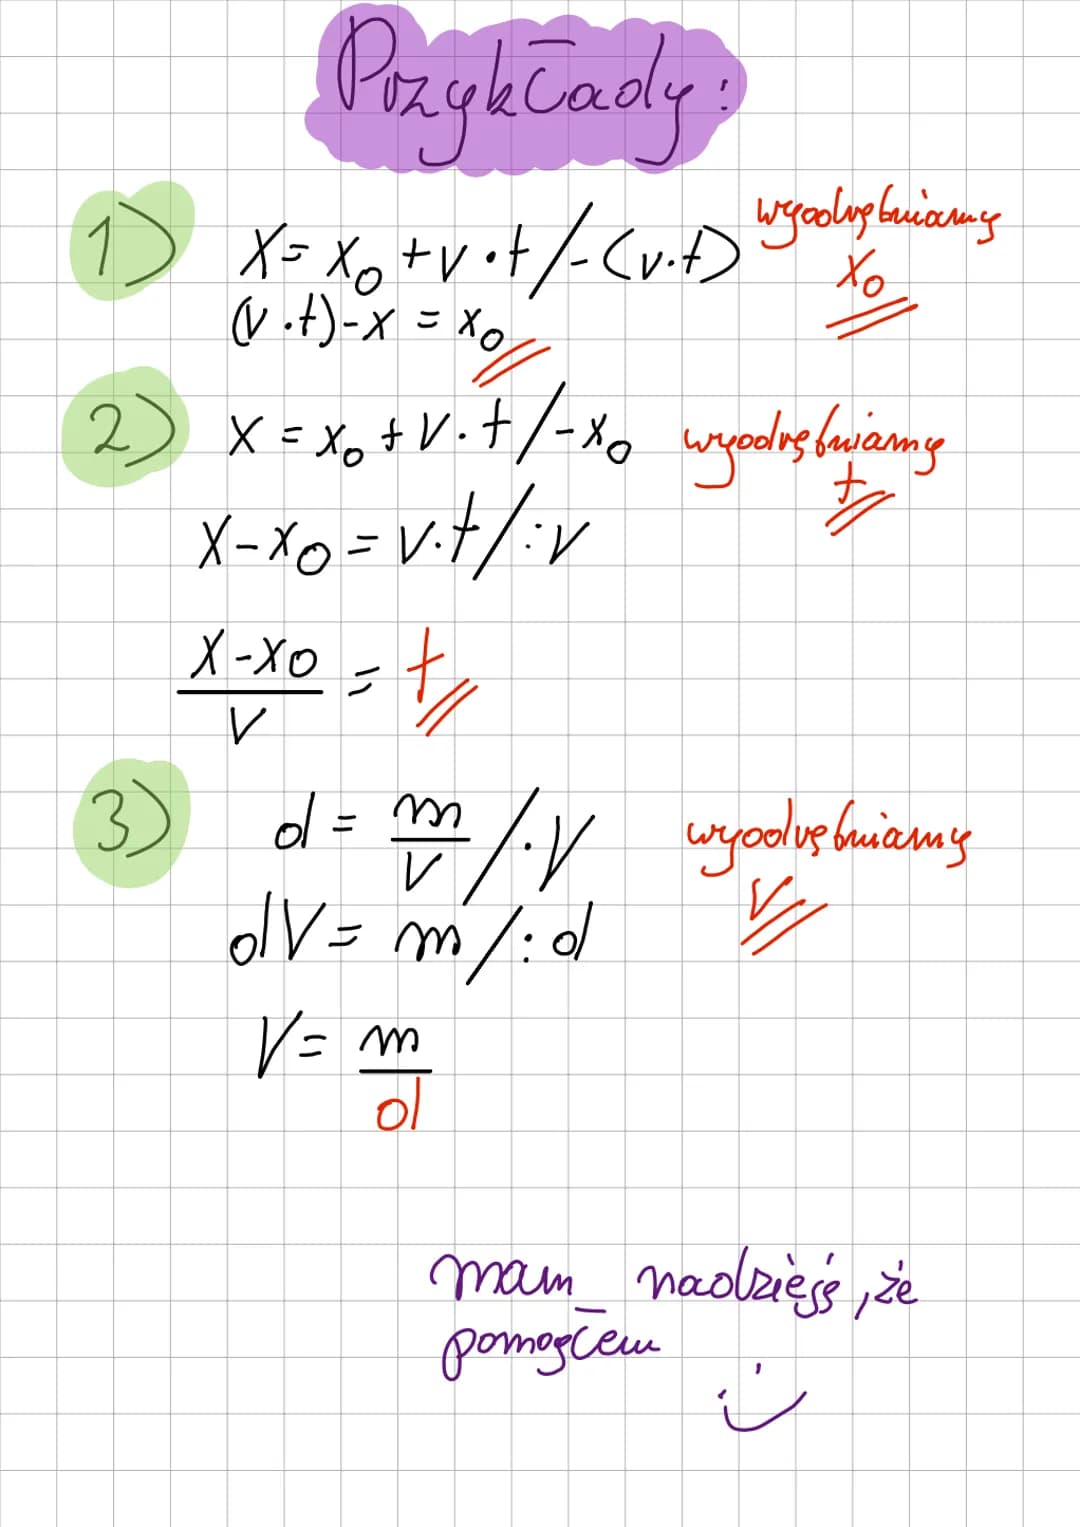 Przykłady:
1) x = x₀ + v · t / - (v·t) wyodrębniamy x₀
(v · t) - x = x₀
2) x = x₀ + v · t / - x₀ wyodrębniamy t
x - x₀ = v · t / : v
x - x₀ / v = t
3) d = m / v / · V wyodrębniamy V
dV = m / : d
V = m / d
mam nadzieję, że
pomogłem